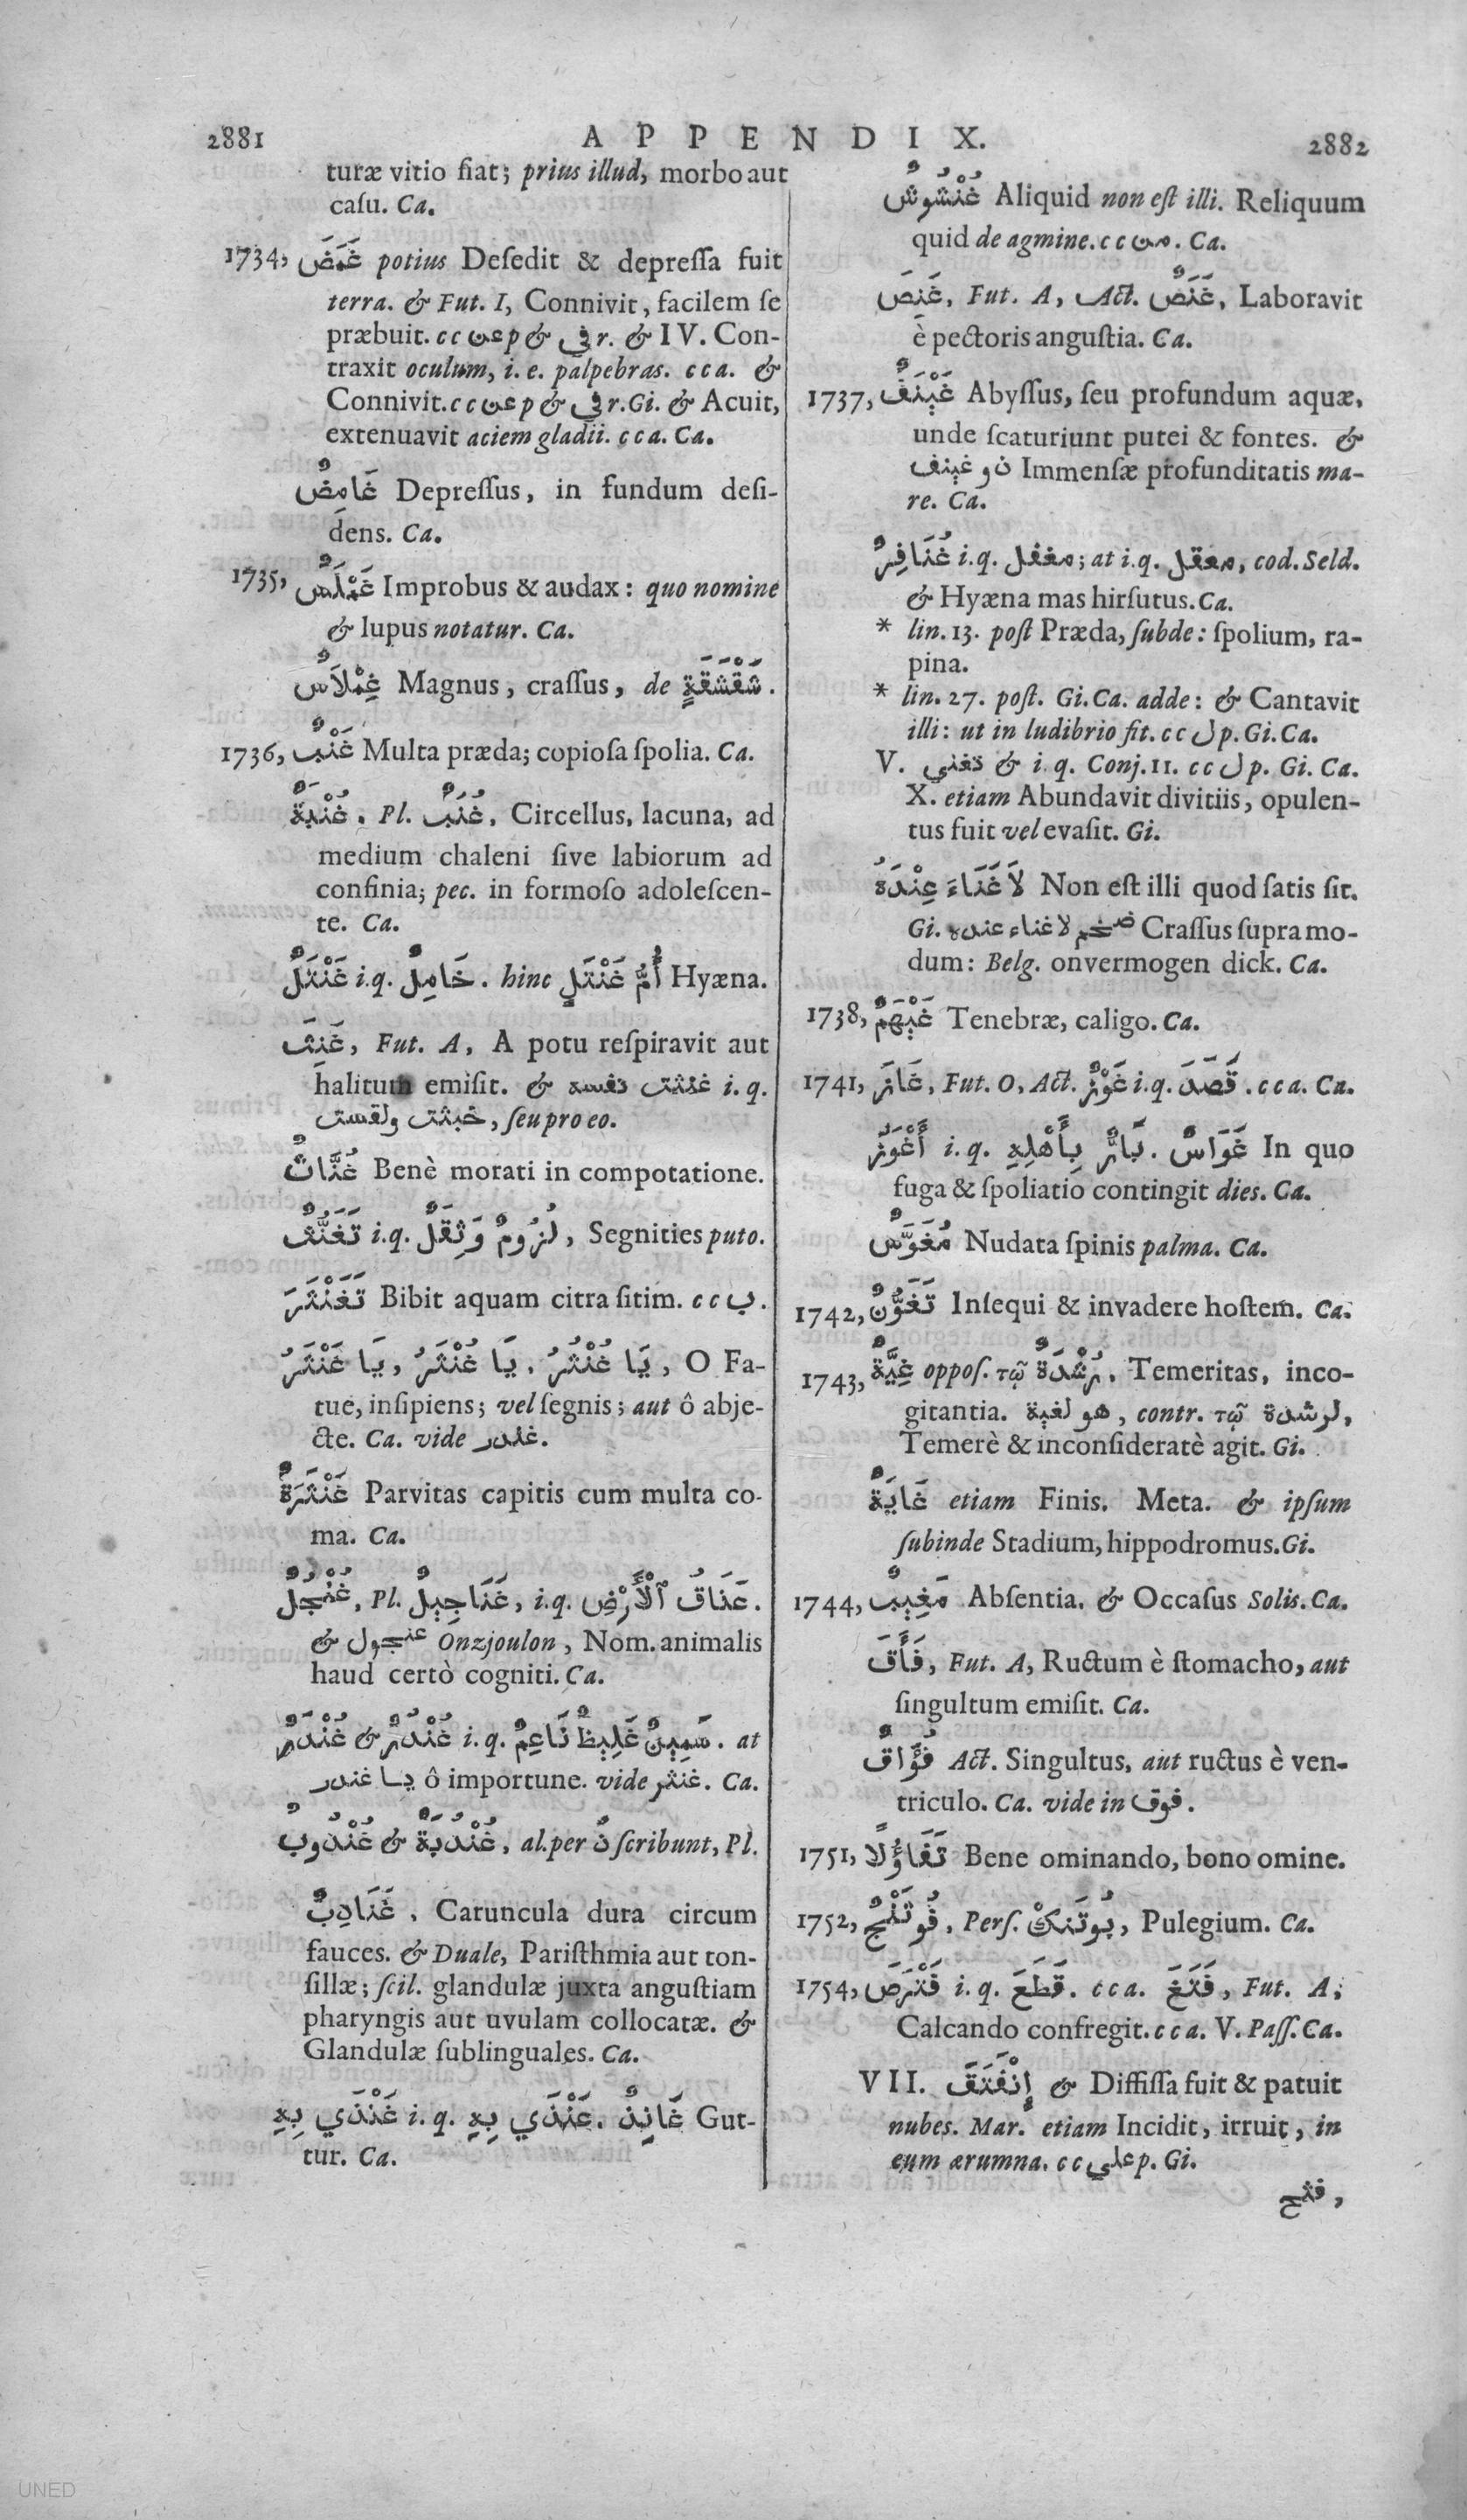 2881 APPENDIX. 2882
turæ vitio fiat; prius illud, morbo aut
caſu. Ca.
1734, غَمَضَ potius Deſedit & depreſſa fuit
terra. & Fut. I, Connivit, facilem ſe
præbuit. cc عن p & في r. & IV. Con-
traxit oculum, i. e. palpebras. cca. &
Connivit. cc عن p & في r. Gi. & Acuit,
extenuavit aciem gladii. cca. Ca.
غَامِضٌ Depreſſus, in fundum deſi-
dens. Ca.
1735, غَمَلَّسٌ Improbus & audax: quo nomine
& lupus notatur. Ca.
غِمْلاَسٌ Magnus, craſſus, de شَقْشَقَةٍ.
1736, غَنْبٌ Multa præda; copioſa ſpolia. Ca.
غُنْبَةٌ, Pl. غُنَبٌ, Circellus, lacuna, ad
medium chaleni ſive labiorum ad
confinia; pec. in formoſo adoleſcen-
te. Ca.
غَنْتَلٌ i.q. خَامِلٌ. hinc أُمُّ غَنْتَلٍ Hyæna.
غَنِثَ, Fut. A, A potu reſpiravit aut
halitum emiſit. & غنثت نفسه i. q.
خبثت ولقست, ſeu pro eo.
غُنَّاثٌ Benè morati in compotatione.
تَغَنُّثٌ i.q. لُزُومٌ وَثِقَلٌ, Segnities puto.
تَغَنْثَرَ Bibit aquam citra ſitim. cc ب.
يَا غُنْثُرُ, يَا غُنْثَرُ, يَا غَنْثَرُ, O Fa-
tue, inſipiens; vel ſegnis; aut ô abje-
cte. Ca. vide غندر.
غَنْثَرَةٌ Parvitas capitis cum multa co-
ma. Ca.
غُنْجُلٌ, Pl. غَنَاجِيلٌ, i.q. عَنَاقُ ٱلْأَرْضِ.
& عنجول Onzjoulon, Nom. animalis
haud certò cogniti. Ca.
غُنْدَرٌ & غُنْدُرٌ i.q. سَمِينٌ غَلِيظٌ نَاعِمٌ. at
يا غندر ô importune. vide غنثر. Ca.
غُنْدُوبٌ & غُنْدُبَةٌ, al. per نٌ ſcribunt, Pl.
غَنَادِبٌ, Caruncula dura circum
fauces. & Duale, Pariſthmia aut ton-
ſillæ; ſcil. glandulæ juxta anguſtiam
pharyngis aut uvulam collocatæ. &
Glandulæ ſublinguales. Ca.
غَنْذَي بِهِ i. q. عَنْذَي بِهِ. غَانِذٌ Gut-
tur. Ca.
غُنْشُوشٌ Aliquid non eſt illi. Reliquum
quid de agmine. cc من. Ca.
غَنِصَ, Fut. A, Act. غَنَصٌ, Laboravit
è pectoris anguſtia. Ca.
1737, غَيْنَفٌ Abyſſus, ſeu profundum aquæ,
unde ſcaturiunt putei & fontes. &
ذو غينف Immenſæ profunditatis ma-
re. Ca.
غُنَافِرٌ i.q. مغفل; at i.q. معقل, cod. Seld.
& Hyæna mas hirſutus. Ca.
* lin. 13. poſt Præda, ſubde: ſpolium, ra-
pina.
* lin. 27. poſt. Gi. Ca. adde: & Cantavit
illi: ut in ludibrio fit. cc ل p. Gi. Ca.
V. تغني & i. q. Conj. 11. cc ل p. Gi. Ca.
X. etiam Abundavit divitiis, opulen-
tus fuit vel evaſit. Gi.
لاَ غَنَاءَ عِنْدَهُ Non eſt illi quod ſatis ſit.
Gi. ضخم لا غناء عنده Craſſus ſupra mo-
dum: Belg. onvermogen dick. Ca.
1738, غَيْهَمٌ Tenebræ, caligo. Ca.
1741, غَازَ, Fut. O, Act. غَوْزٌ i.q. قَصَدَ. cca. Ca.
أَغْوَزُ i. q. بَارٌّ بِأَهْلِهِ. غَوَاسٌ In quo
fuga & ſpoliatio contingit dies. Ca.
مُغَوَّسٌ Nudata ſpinis palma. Ca.
1742, تَغَوُّنٌ Inſequi & invadere hoſtem. Ca.
1743, غِيَّةٌ oppoſ. τῷ رُشْدَةٌ, Temeritas, inco-
gitantia. هو لغية, contr. τῷ لرشدة,
Temerè & inconſideratè agit. Gi.
غَايَةٌ etiam Finis. Meta. & ipſum
ſubinde Stadium, hippodromus. Gi.
1744, مَغِيبٌ Abſentia. & Occaſus Solis. Ca.
فَأَقَ, Fut. A, Ructum è ſtomacho, aut
ſingultum emiſit. Ca.
فُؤَاقٌ Act. Singultus, aut ructus è ven-
triculo. Ca. vide in فوق.
1751, تَفَاؤُلًا Bene ominando, bono omine.
1752, فُوتَنْجٌ, Perſ. بُوتَنكْ, Pulegium. Ca.
1754, فَتْرَصَ i. q. قَطَعَ. cca. فَتَغَ, Fut. A,
Calcando confregit. cca. V. Paſſ. Ca.
VII. إِنْفَتَقَ & Diffiſſa fuit & patuit
nubes. Mar. etiam Incidit, irruit, in
eum ærumna. cc علي p. Gi.
فتح,
UNED